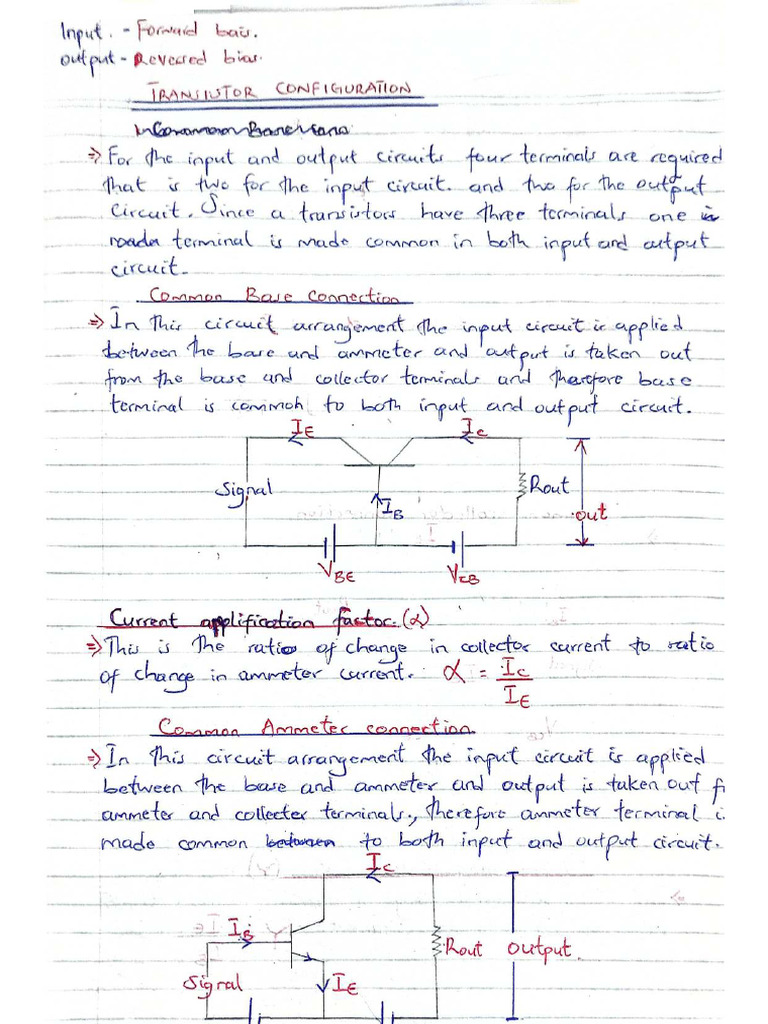 Input. - Forward bais.
Output - Reversed bias.
TRANSISTOR CONFIGURATION
⇒ For the input and output circuits four terminals are required
that is two for the input circuit. and two for the output
circuit. Since a transistors have three terminals one is
terminal is made common in both input and output
circuit.
Common Base Connection
⇒ In this circuit arrangement the input circuit is applied
between the base and ammeter and output is taken out
from the base and collector terminals and therefore base
terminal is common to both input and output circuit.
I_E I_C
Signal Rout
I_B out
V_BE V_CB
Current applification factor. (α)
⇒ This is the ratio of change in collector current to ratio
of change in ammeter current. α = I_C / I_E
Common Ammeter connection.
⇒ In this circuit arrangement the input circuit is applied
between the base and ammeter and output is taken out
ammeter and collecter terminals., therefore ammeter terminal
made common between to both input and output circuit.
I_C
I_B Rout output.
Signal I_E